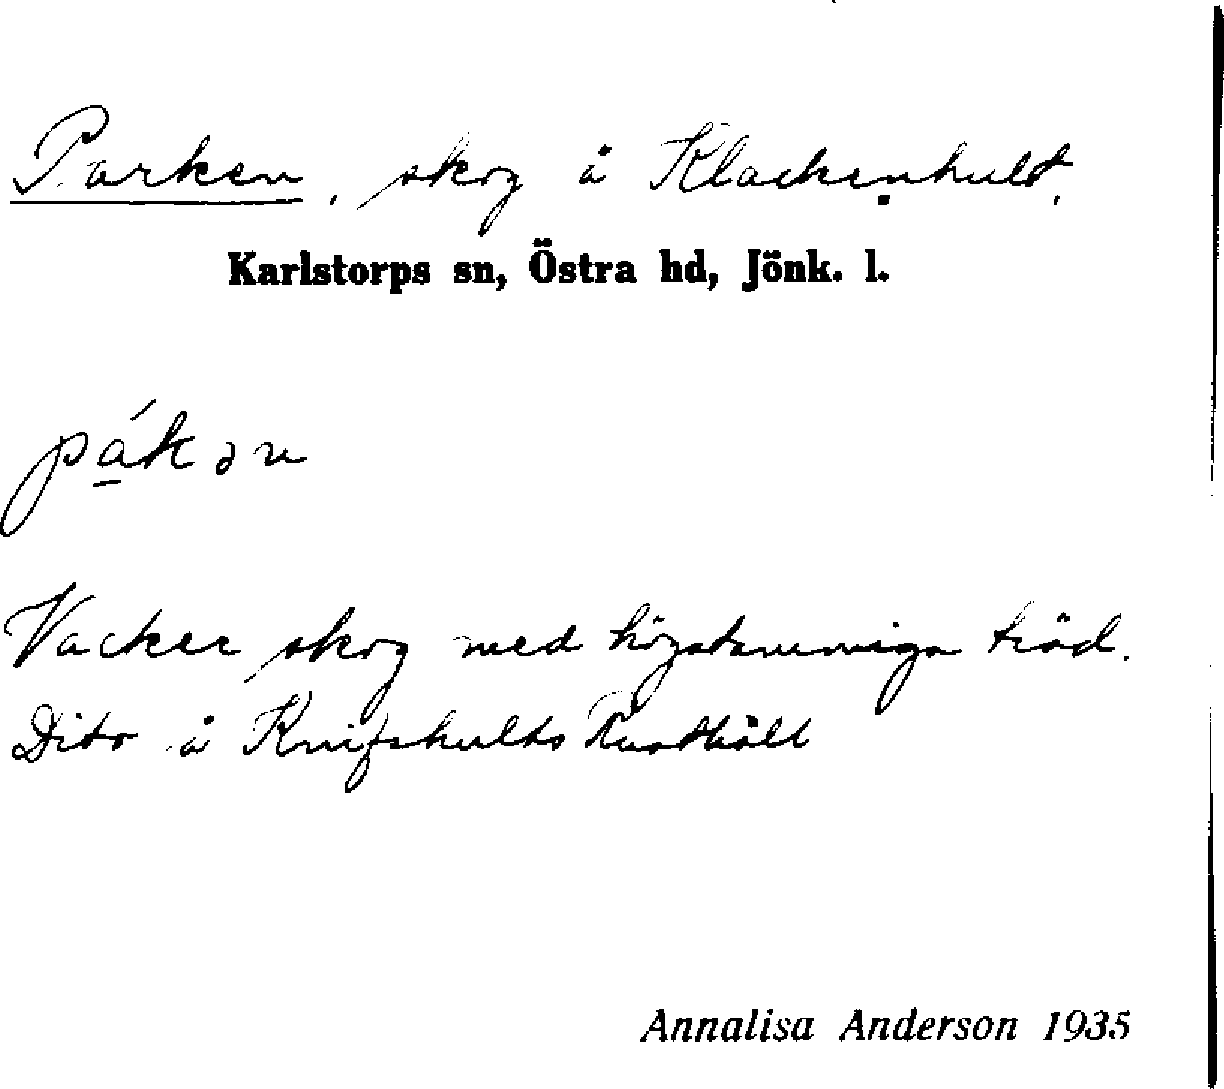 Parken, skog å Klackenhult.
Karlstorps sn, Östra hd, Jönk. l.
pákən
Vacker skog med högstammiga träd.
Dito å Knifshults Rusthåll
Annalisa Anderson 1935